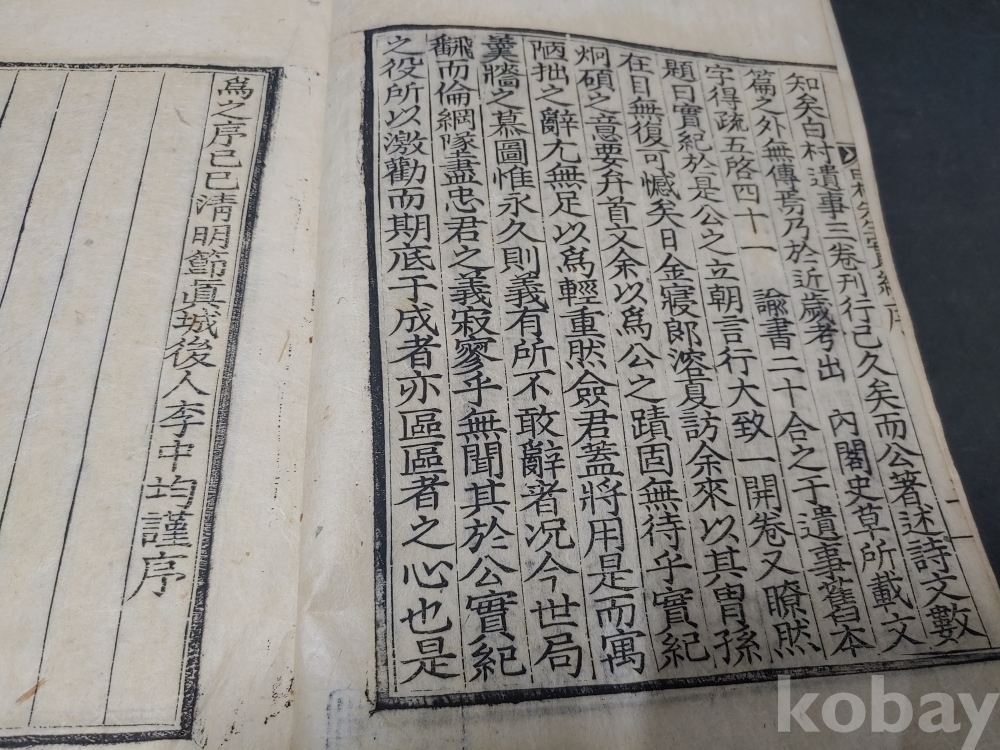 知矣白村遺事三卷刊行已久矣而公著述詩文數
篇之外無傳焉乃於近歲考出 內閣史草所載文
字得疏五啓四十一 諭書二十合之于遺事舊本
題曰實紀於是公之立朝言行大致一開卷又瞭然
在目無復可憾矣日金寢郎溶夏訪余來以其胄孫
炯碩之意要弁首文余以爲公之蹟固無待乎實紀
陋拙之辭尤無足以爲輕重然僉君蓋將用是而寓
羹牆之慕圖惟永久則義有所不敢辭者况今世局
飜而倫綱墜盡忠君之義寂寥乎無聞其於公實紀
之役所以激勸而期底于成者亦區區者之心也是
爲之序己巳淸明節眞城後人李中均謹序
kobay